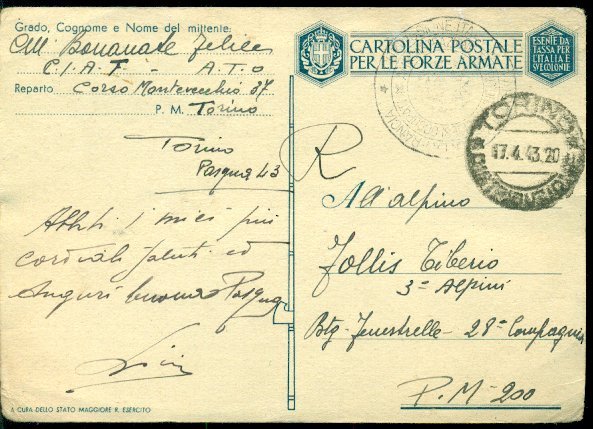 Grado, Cognome e Nome del mittente:
Bonanate Felice
C.I.A.F - A.T.O
Reparto Corso Montevecchio 37
P. M. Torino
CARTOLINA POSTALE
PER LE FORZE ARMATE
ESENTE DA
TASSA PER
L'ITALIA E
SUE COLONIE
TORINO
17.4.43.20
Torino
Pasqua 43
R
Abbiti i miei più
cordiali saluti ed
Auguri buona Pasqua
All'alpino
Jollis Tiberio
3° Alpini
Btg. Fenestrelle - 28ª Compagnia
P.M. 200
A CURA DELLO STATO MAGGIORE R. ESERCITO